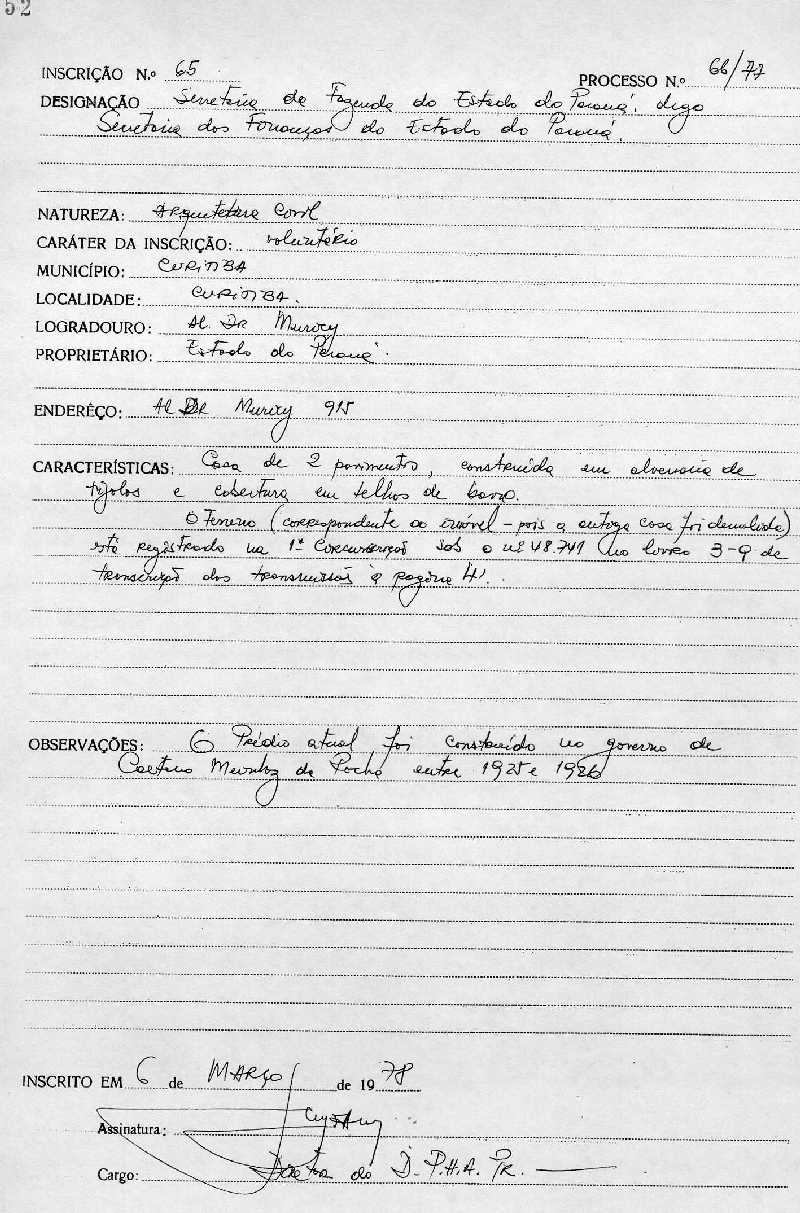 52
INSCRIÇÃO N.º 65
PROCESSO N.º 66/77
DESIGNAÇÃO Secretaria da Fazenda do Estado do Paraná, digo
Secretaria das Finanças do Estado do Paraná.
NATUREZA: Arquitetura Civil
CARÁTER DA INSCRIÇÃO: voluntário
MUNICÍPIO: CURITIBA
LOCALIDADE: CURITIBA.
LOGRADOURO: Al. Dr Muricy
PROPRIETÁRIO: Estado do Paraná.
ENDERÊÇO: Al Dr Muricy 915
CARACTERÍSTICAS: Casa de 2 pavimentos, construída em alvenaria de
tijolos e cobertura em telhas de barro.
O Terreno (correspondente ao imóvel - pois a antiga casa foi demolida)
está registrado na 1ª Circunscrição sob o nº 48.741 no livro 3-Q de
transcrição das transmissões à página 41.
OBSERVAÇÕES: O Prédio atual foi construído no governo de
Caetano Munhoz da Rocha entre 1925 e 1926
INSCRITO EM 6 de MARÇO de 1978
Assinatura:
Cargo: Diretora do D.P.H.A. Pr.